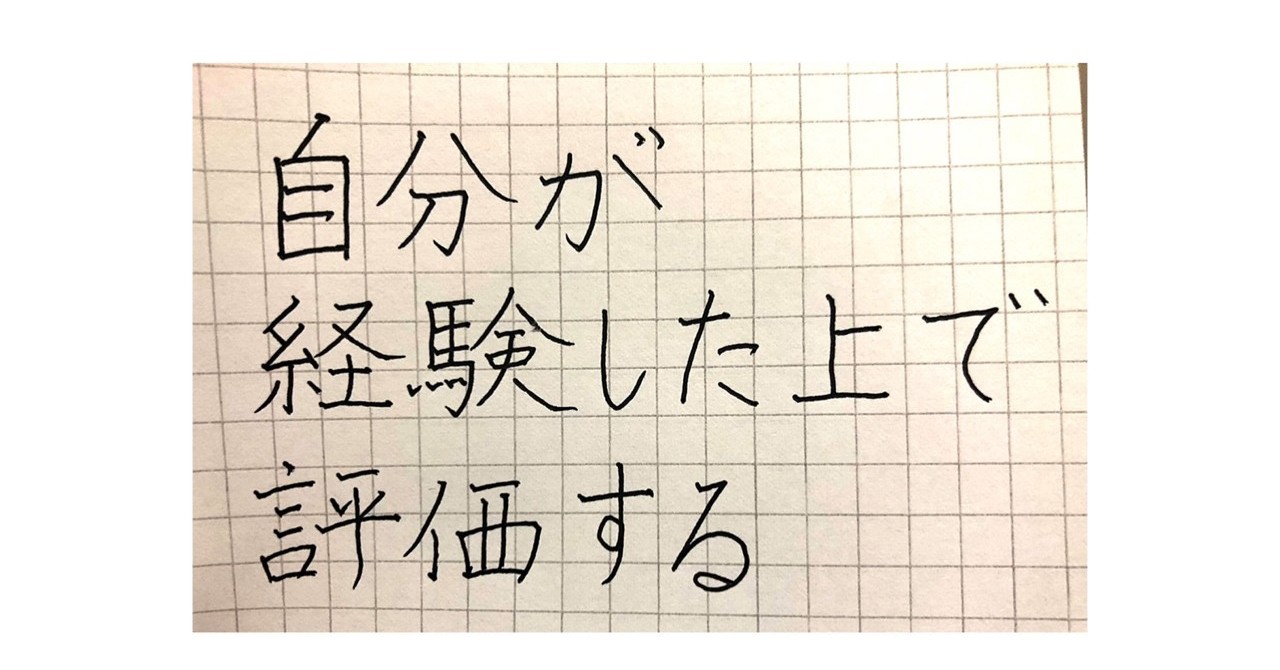 自分が
経験した上で
評価する